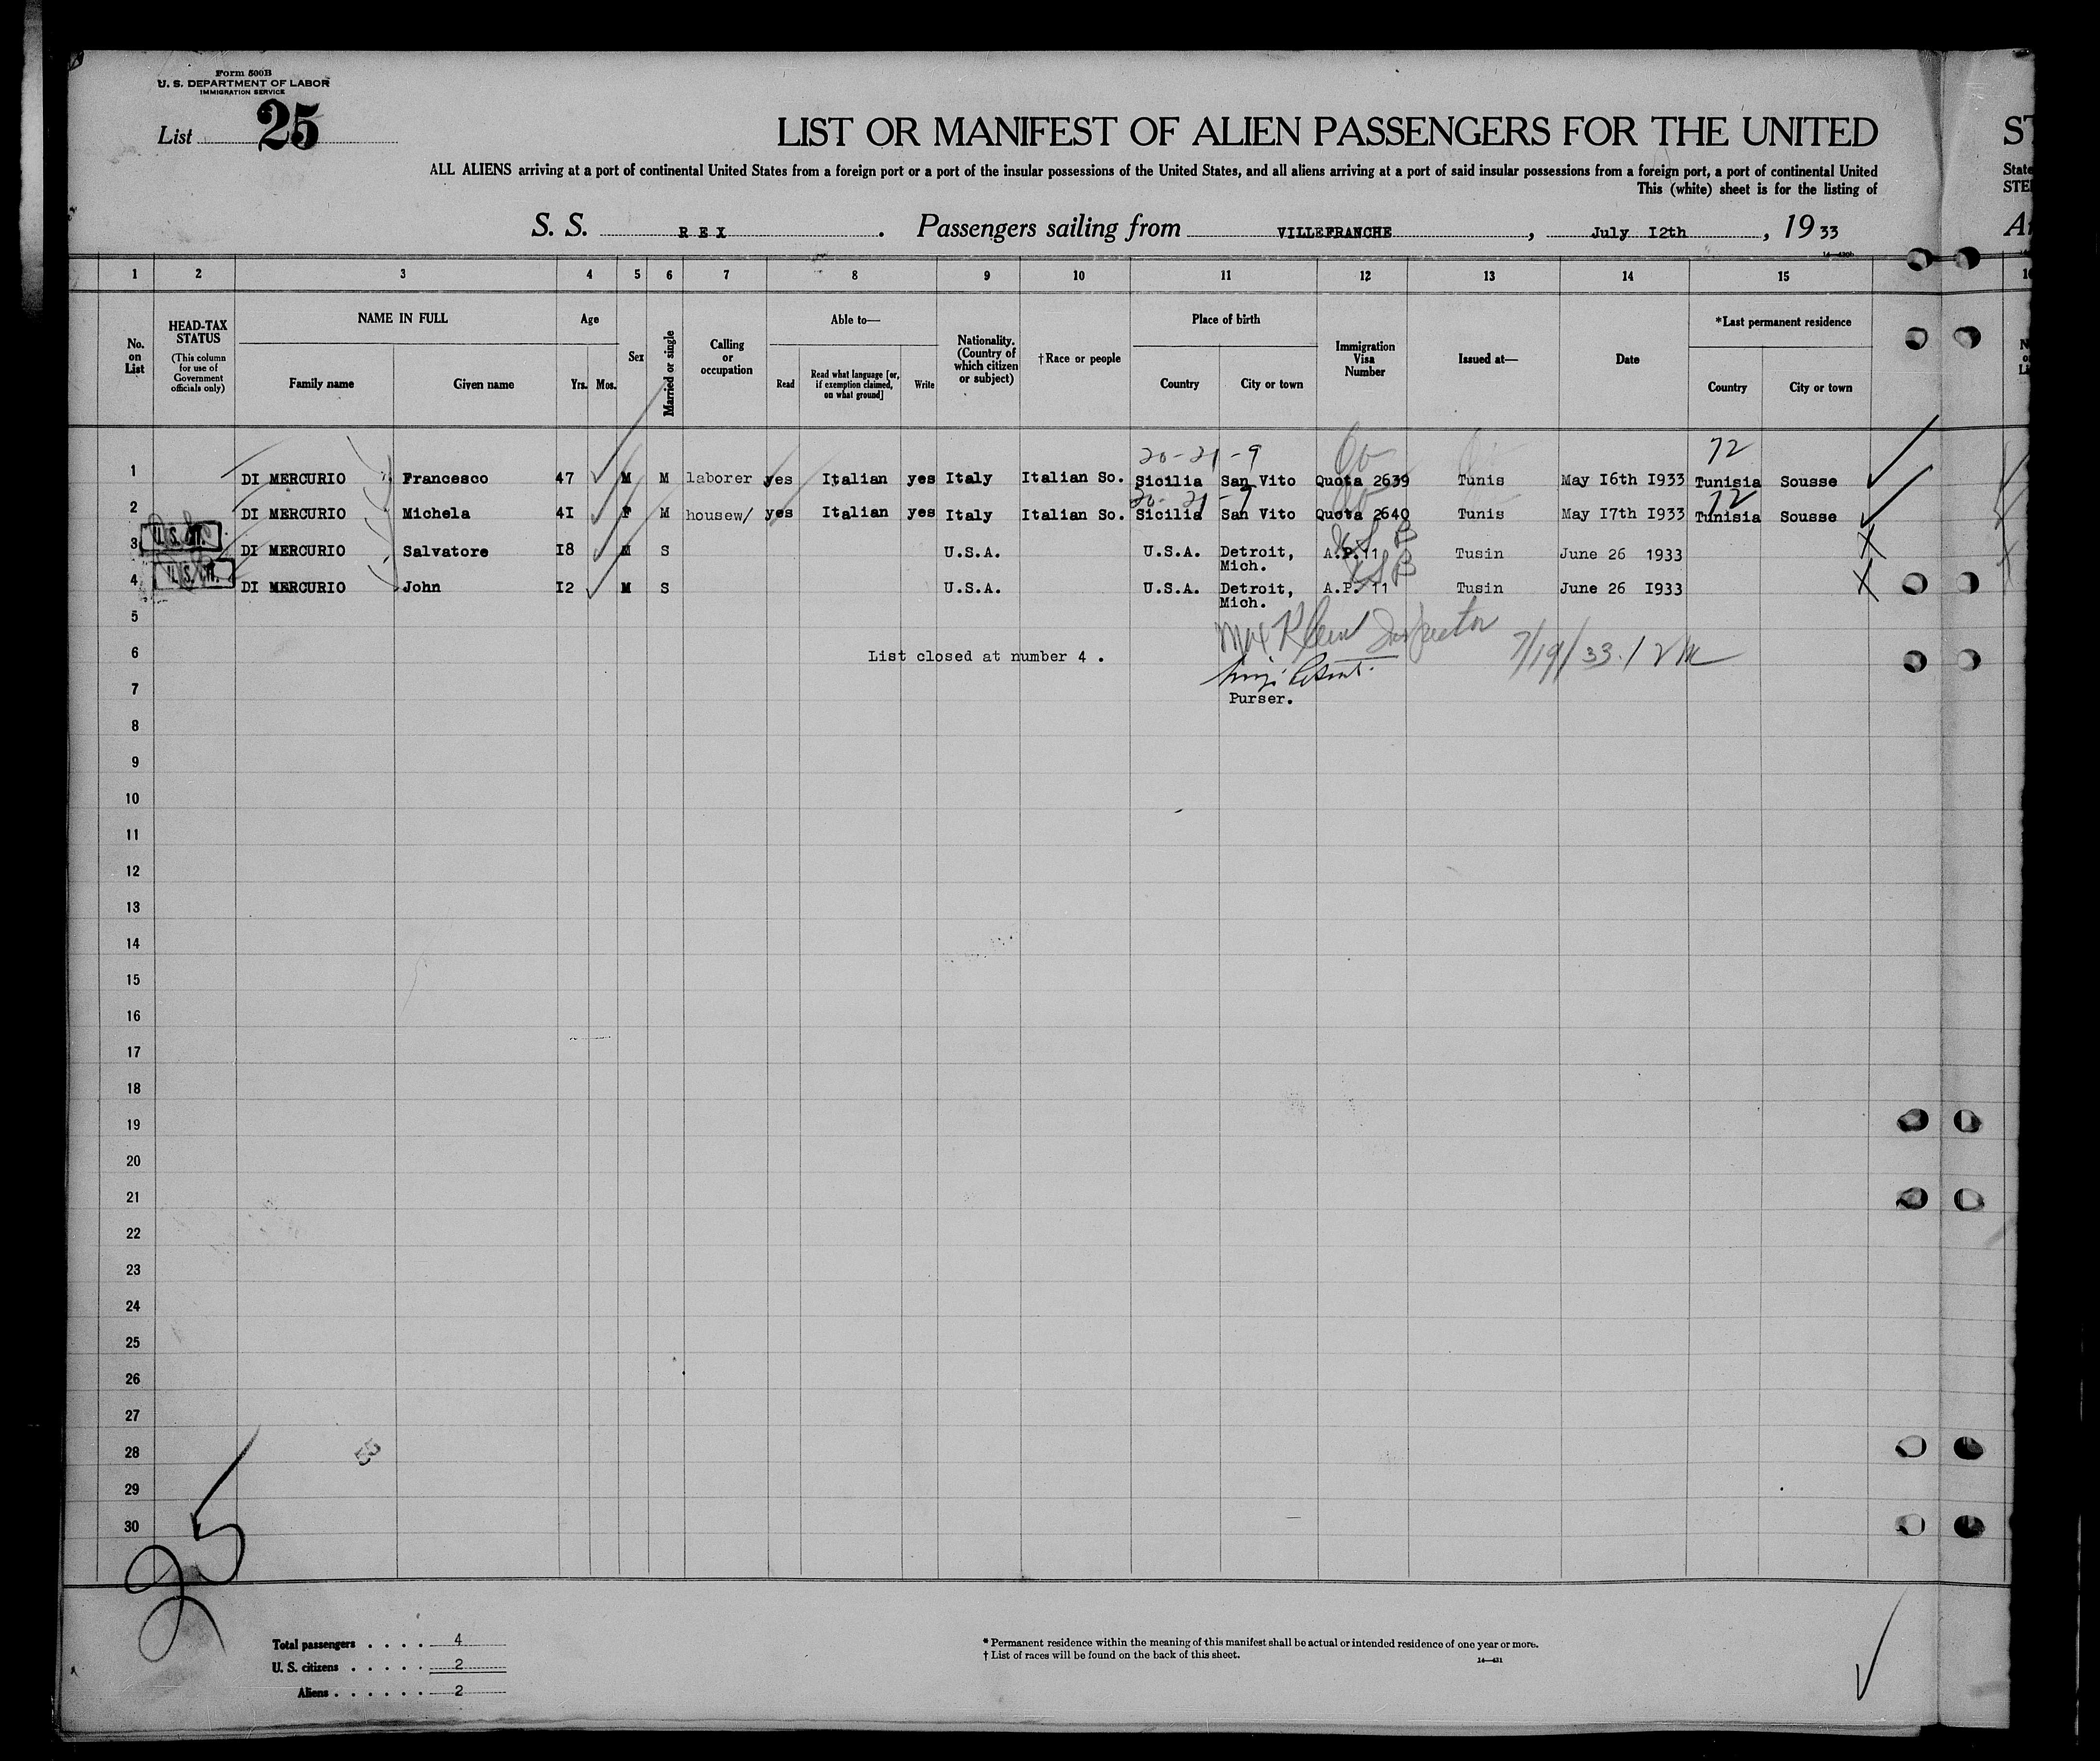 Form 500B
U. S. DEPARTMENT OF LABOR
IMMIGRATION SERVICE
List 25
LIST OR MANIFEST OF ALIEN PASSENGERS FOR THE UNITED
ALL ALIENS arriving at a port of continental United States from a foreign port or a port of the insular possessions of the United States, and all aliens arriving at a port of said insular possessions from a foreign port, a port of continental United
This (white) sheet is for the listing of
S. S. REX. Passengers sailing from VILLEFRANCHE, July I2th, 1933
ST
State
STE
1 2 3 4 5 6 7 8 9 10 11 12 13 14 15
No. on List
HEAD-TAX STATUS
(This column for use of Government officials only)
NAME IN FULL
Family name Given name
Age
Yrs. Mos.
Sex
Married or single
Calling or occupation
Able to—
Read
Read what language [or, if exemption claimed, on what ground]
Write
Nationality. (Country of which citizen or subject)
†Race or people
Place of birth
Country City or town
Immigration Visa Number
Issued at—
Date
*Last permanent residence
Country City or town
20-21-9 72
1 DI MERCURIO Francesco 47 M M laborer yes Italian yes Italy Italian So. Sicilia San Vito Quota 2639 Tunis May I6th I933 Tunisia Sousse
20-21-9 72
2 DI MERCURIO Michela 4I F M housew/ yes Italian yes Italy Italian So. Sicilia San Vito Quota 2640 Tunis May I7th I933 Tunisia Sousse
U.S. CIT.
3 DI MERCURIO Salvatore I8 M S U.S.A. U.S.A. Detroit, Mich. A.P.11 Tusin June 26 1933
U.S. CIT.
4 DI MERCURIO John I2 M S U.S.A. U.S.A. Detroit, Mich. A.P. 11 Tusin June 26 I933
5
Max Klein Inspector 7/19/33
6 List closed at number 4 .
7 Purser.
8
9
10
11
12
13
14
15
16
17
18
19
20
21
22
23
24
25
26
27
28
29
30
25
Total passengers . . . . 4
U. S. citizens . . . . . 2
Aliens . . . . . . 2
* Permanent residence within the meaning of this manifest shall be actual or intended residence of one year or more.
† List of races will be found on the back of this sheet.
14—431